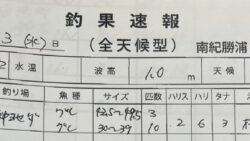 釣果速報
3(水)日 (全天候型) 南紀勝浦
水温 波高 1.0 m 天候
釣り場 魚種 サイズ 匹数 ハリス ハリ タナ
グレ 42.5〜49.5 3 2 6 3
グレ 30〜39 10